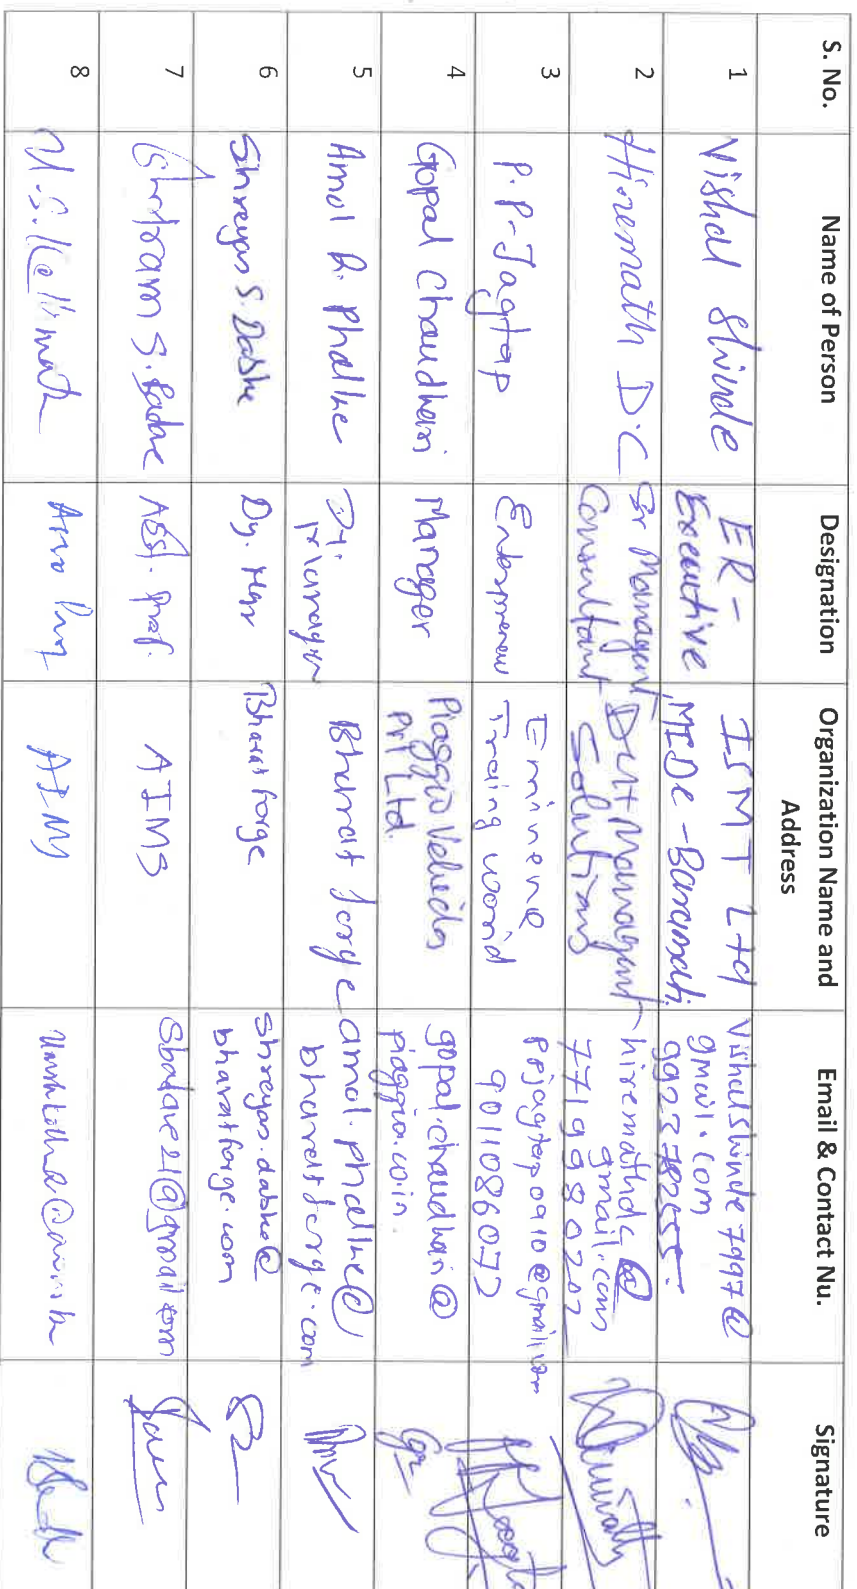 S. No. Name of Person Designation Organization Name and Address Email & Contact Nu. Signature
1 Vishal Shinde ER - Executive ISMT Ltd MIDC - Baramati. Vishalshinde7997@gmail.com
2 Hiremath D.C Sr Managent Consultant DCH Managent Solutions hiremathdc@gmail.com 7719980202
3 P.P. Jagtap Enterpreneur Eminene Traing world Ppjagtap0910@gmail.com 9011086072
4 Gopal Chaudhari Manager Piaggio Vehicles Pvt Ltd. gopal.chaudhari@piaggio.co.in.
5 Amol R. Phalke Dy. Manager Bharat forge amol.phalke@bharatforge.com
6 Shreyas S. Dabke Dy. Mgr Bharat forge shreyas.dabke@bharatforge.com
7 S. Asst. Prof. AIMS @gmail.com
8 U.S. Asso Prof AIMS